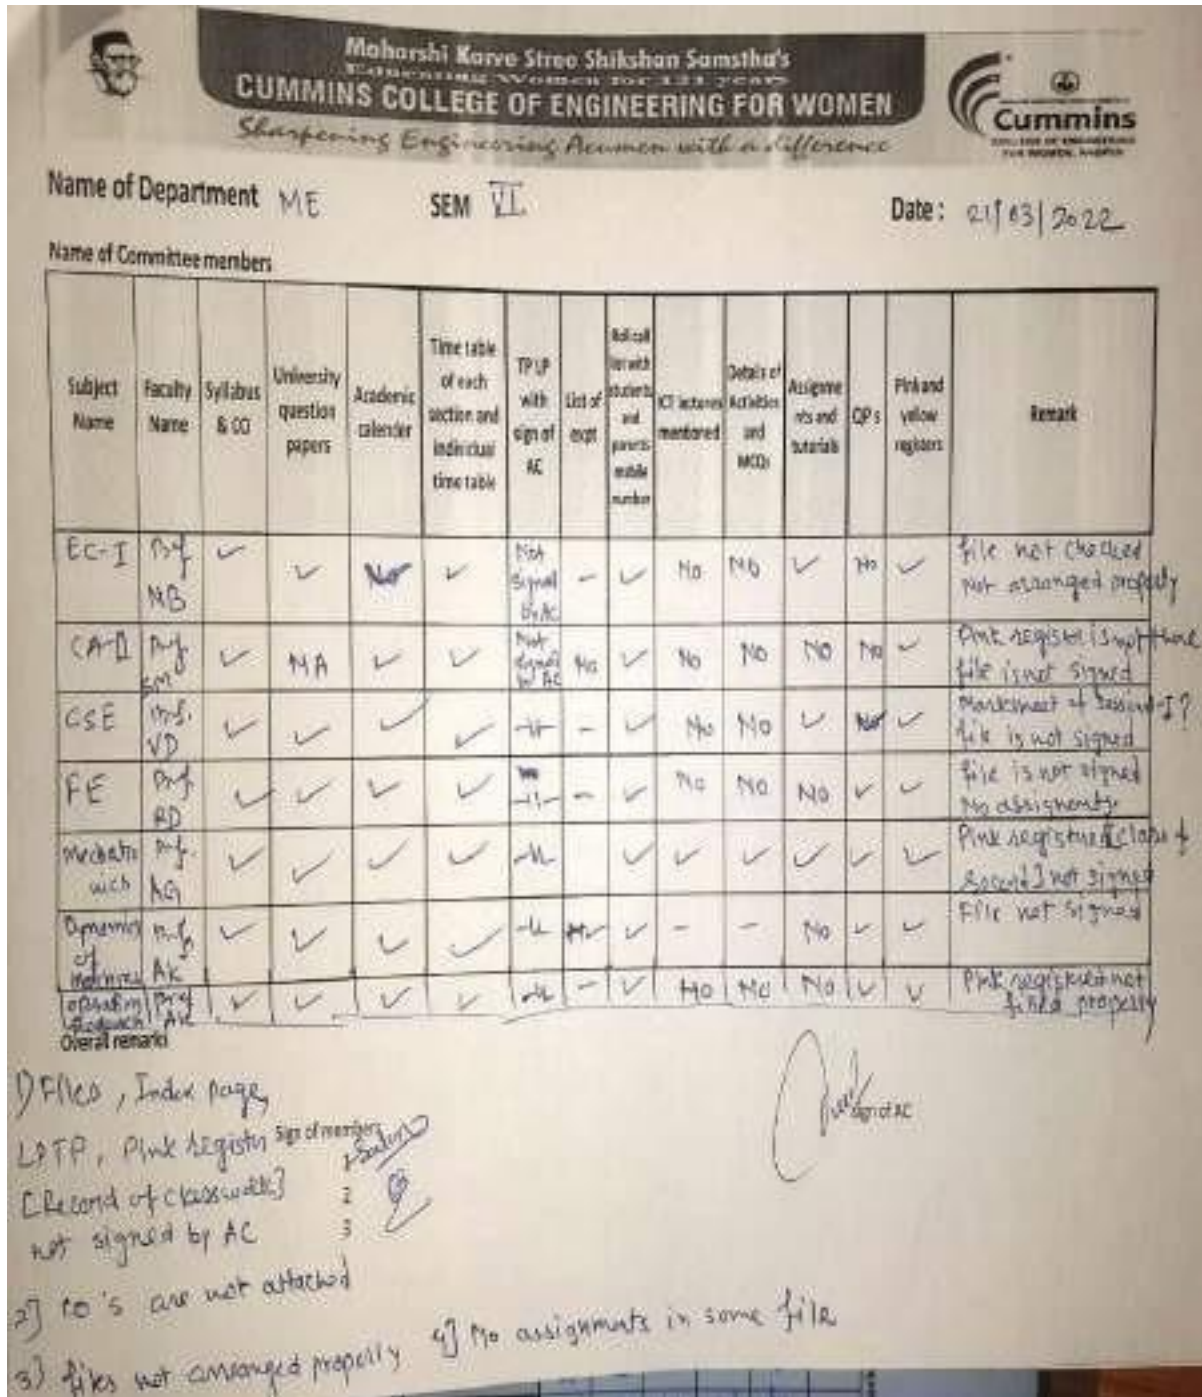 Maharshi Karve Stree Shikshan Samstha's
Educating Women for 121 years
CUMMINS COLLEGE OF ENGINEERING FOR WOMEN
Sharpening Engineering Acumen with a difference
Cummins
COLLEGE OF ENGINEERING
FOR WOMEN, NAGPUR
Name of Department ME SEM VI Date : 21/03/2022
Name of Committee members
Subject Name | Faculty Name | Syllabus & CO | University question papers | Academic calender | Time table of each section and individual time table | TP LP with sign of AC | List of expt | Roll call list with students and parents mobile number | ICT lectures mentioned | Details of Activities and MCQs | Assignments and tutorials | QPs | Pink and yellow registers | Remark
EC-I | Prof NB | ✓ | ✓ | No | ✓ | Not signed by AC | - | ✓ | No | No | ✓ | No | ✓ | file not checked not arranged properly
CA-II | Prof SM | ✓ | NA | ✓ | ✓ | Not signed by AC | No | ✓ | No | No | No | No | ✓ | Pink register is not there file is not signed
CSE | Prof. VD | ✓ | ✓ | ✓ | ✓ | -11- | - | ✓ | No | No | ✓ | No | ✓ | Marksheet of Sessional-I? file is not signed
FE | Prof BD | ✓ | ✓ | ✓ | ✓ | -11- | - | ✓ | No | No | No | ✓ | ✓ | file is not signed No assignments.
Mechatronics | Prof. AG | ✓ | ✓ | ✓ | ✓ | -11- | ✓ | ✓ | ✓ | ✓ | ✓ | ✓ | Pink register not signed
Dynamics of Machines | Prof AK | ✓ | ✓ | ✓ | ✓ | -11- | ✓ | - | - | No | ✓ | ✓ | File not signed
Operation Research | Prof AK | ✓ | ✓ | ✓ | ✓ | -11- | - | ✓ | No | No | No | ✓ | ✓ | Pink register not filled properly
Overall remarks
1) Files, Index page,
LPTP, Pink register
[Record of classwork]
not signed by AC
Sign of members
1
2
3
Sign of AC
2] CO's are not attached
3] files not arranged properly 4] No assignments in some file